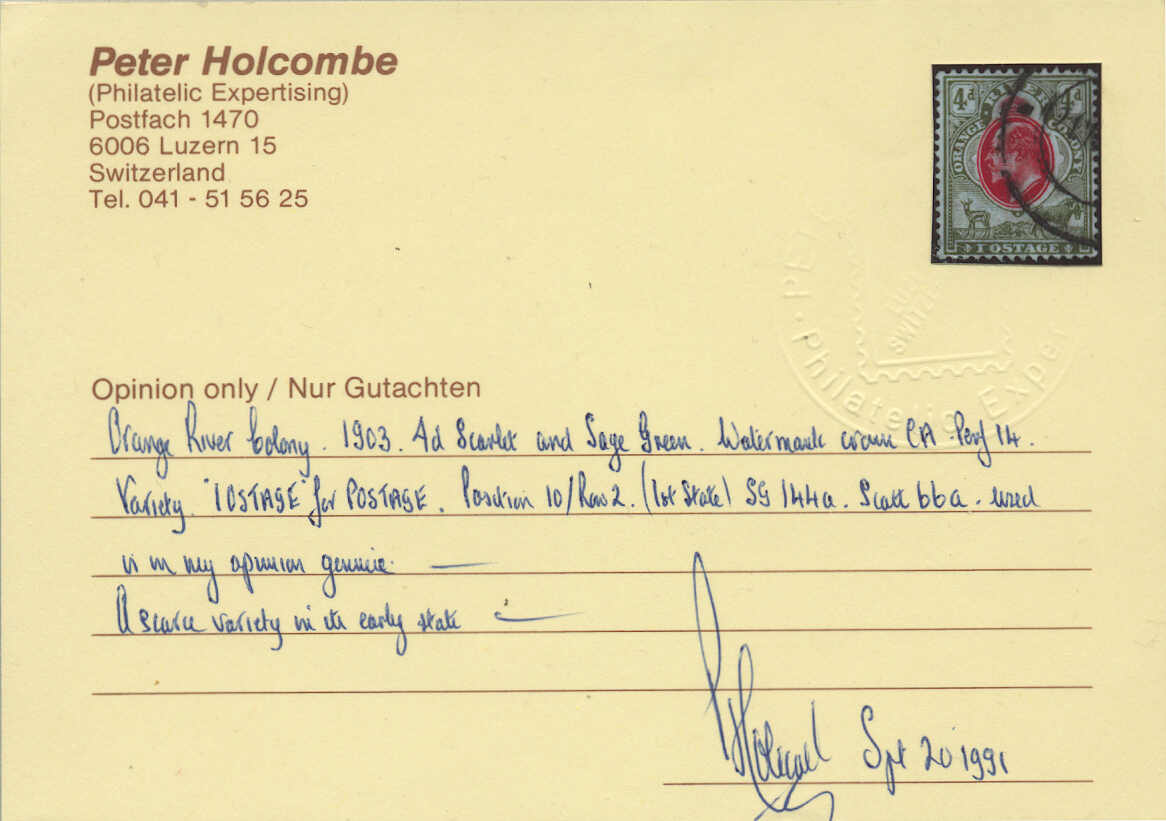 Peter Holcombe
(Philatelic Expertising)
Postfach 1470
6006 Luzern 15
Switzerland
Tel. 041 - 51 56 25
4d 4d
ORANGE RIVER COLONY
IOSTAGE
PET
LUZ
SWITZE
· Philatelic Exper
Opinion only / Nur Gutachten
Orange River Colony. 1903. 4d Scarlet and Sage Green. Watermark crown CA. Perf 14.
Variety. "IOSTAGE" for POSTAGE. Position 10/Row 2. (1st State) SG 144a. Scott 66a. used
is in my opinion genuine.
A scarce variety in its early state
Holcombe Spt 20 1991